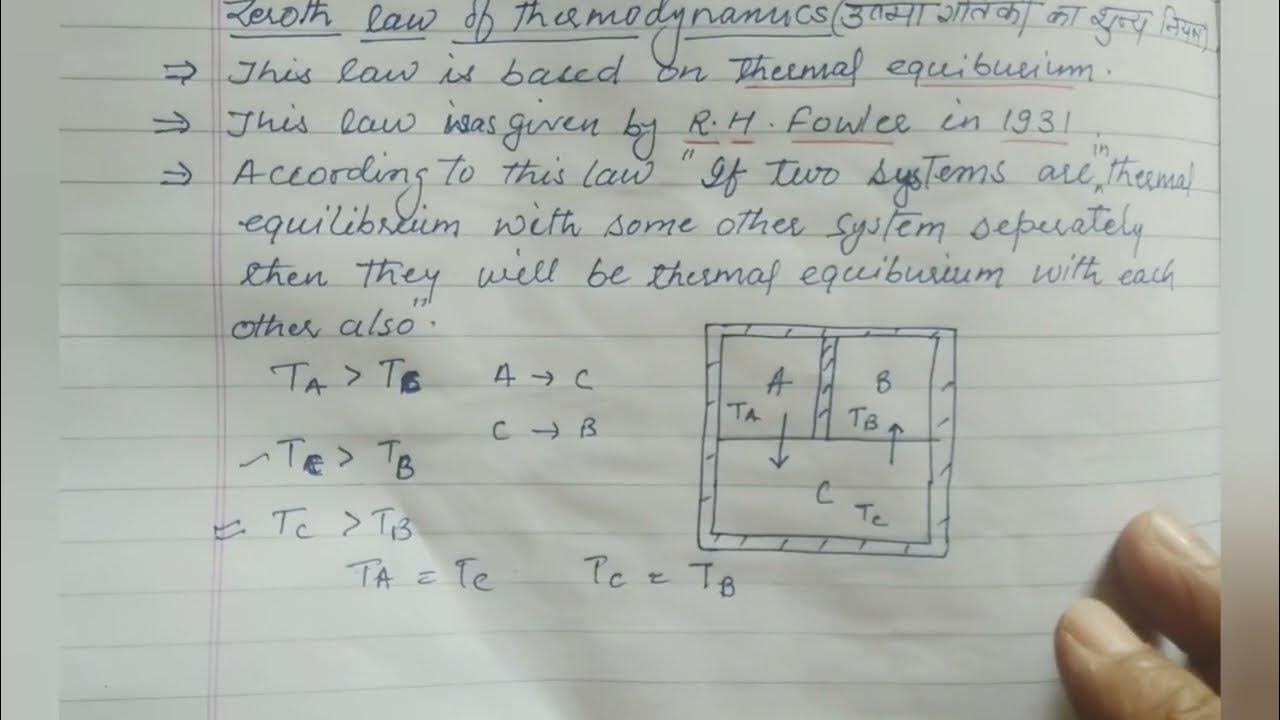 Zeroth law of thermodynamics (उष्मा गतिकी का शुन्य नियम)
⇒ This law is based on thermal equiburium.
⇒ This law was given by R.H. Fowler in 1931.
⇒ According to this law "If two systems are in thermal
equilibrium with some other system seperately
then they will be thermal equiburium with each
other also".
TA > TB A → C
C → B
TC > TB
TC > TB
TA = TC TC = TB
A B
TA TB
C TC